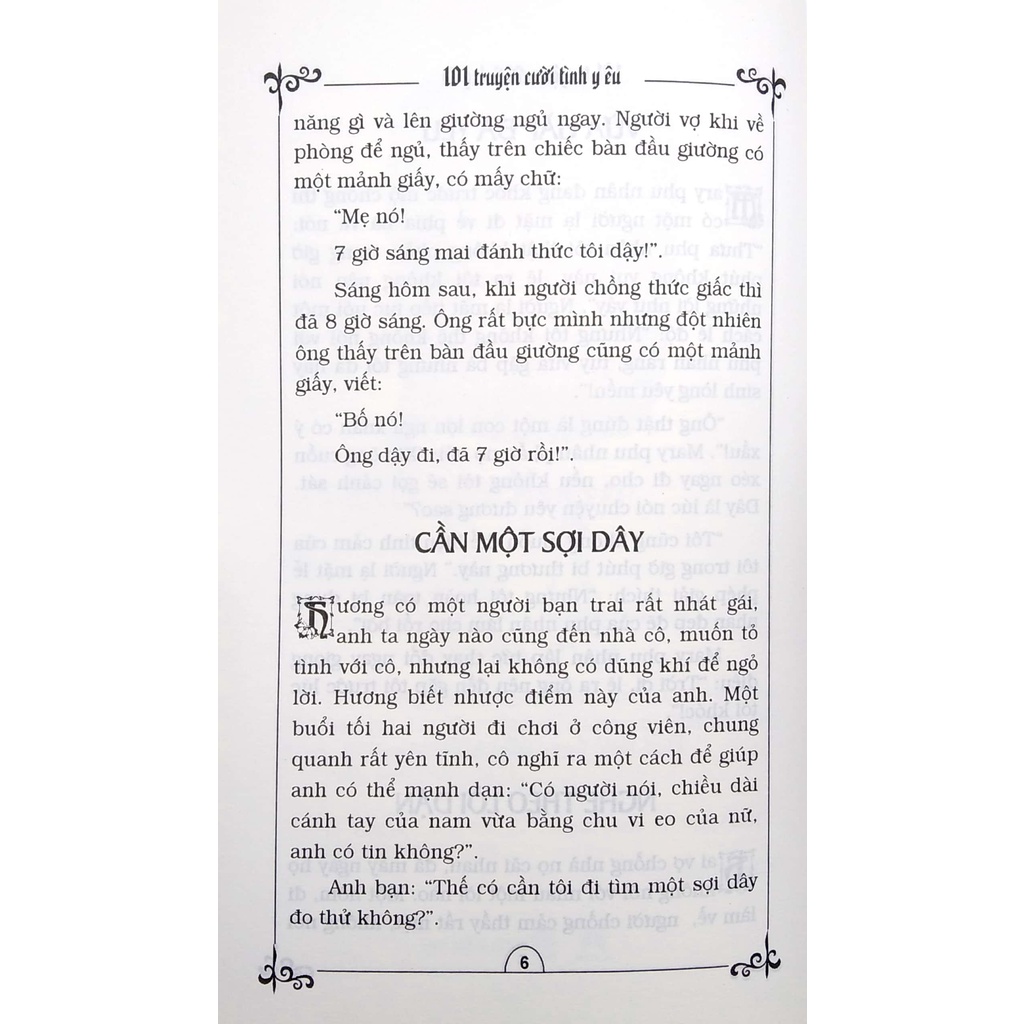 101 truyện cười tình y êu
năng gì và lên giường ngủ ngay. Người vợ khi về
phòng để ngủ, thấy trên chiếc bàn đầu giường có
một mảnh giấy, có mấy chữ:
“Mẹ nó!
7 giờ sáng mai đánh thức tôi dậy!”.
Sáng hôm sau, khi người chồng thức giấc thì
đã 8 giờ sáng. Ông rất bực mình nhưng đột nhiên
ông thấy trên bàn đầu giường cũng có một mảnh
giấy, viết:
“Bố nó!
Ông dậy đi, đã 7 giờ rồi!”.
CẦN MỘT SỢI DÂY
Hương có một người bạn trai rất nhát gái,
anh ta ngày nào cũng đến nhà cô, muốn tỏ
tình với cô, nhưng lại không có dũng khí để ngỏ
lời. Hương biết nhược điểm này của anh. Một
buổi tối hai người đi chơi ở công viên, chung
quanh rất yên tĩnh, cô nghĩ ra một cách để giúp
anh có thể mạnh dạn: “Có người nói, chiều dài
cánh tay của nam vừa bằng chu vi eo của nữ,
anh có tin không?”.
Anh bạn: “Thế có cần tôi đi tìm một sợi dây
đo thử không?”.
6